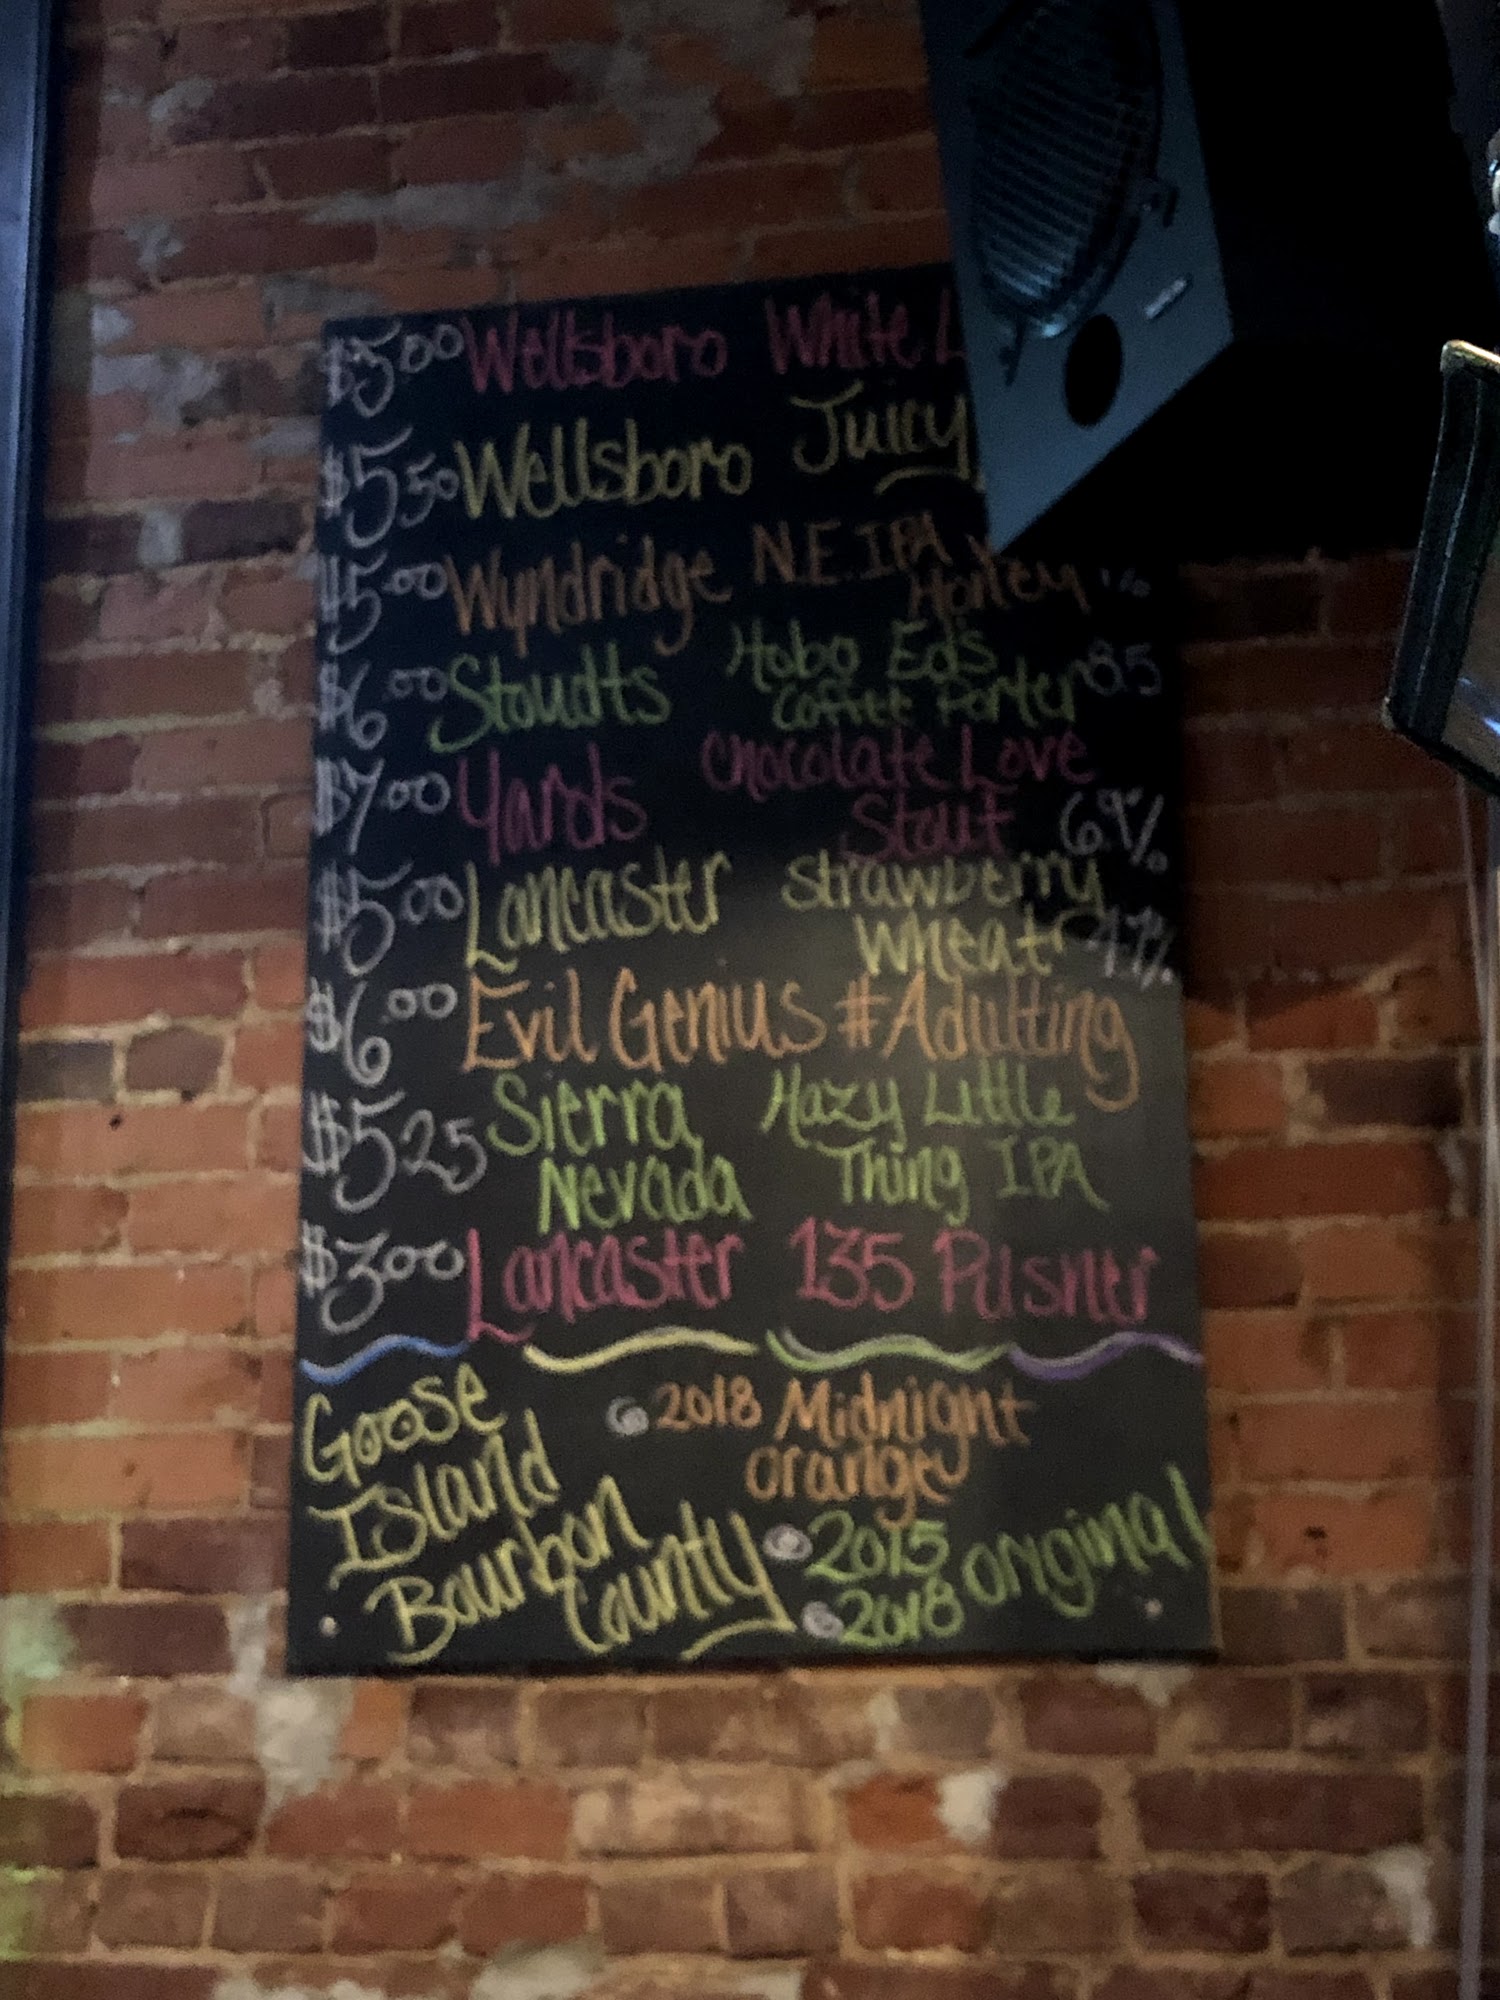 $5.00 Wellsboro White L
$5.50 Wellsboro Juicy
$5.00 Wyndridge N.E. IPA
Honey
$6.00 Stoudts Hobo Eds
Coffee Porter 8.5
$7.00 Yards Chocolate Love
Stout 6.9%
$5.00 Lancaster Strawberry
Wheat
$6.00 Evil Genius #Adulting
$5.25 Sierra Hazy Little
Nevada Thing IPA
$3.00 Lancaster 135 Pilsner
Goose
Island
Bourbon
County
2018 Midnight
Orange
2015
2018
original